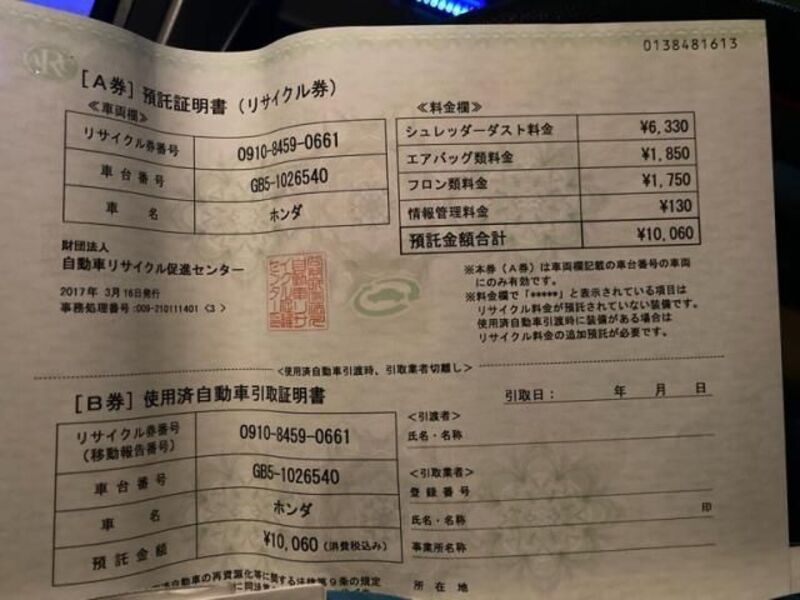 0138481613
[A券] 預託証明書(リサイクル券)
≪車両欄≫
リサイクル券番号 0910-8459-0661
車台番号 GB5-1026540
車名 ホンダ
≪料金欄≫
シュレッダーダスト料金 ¥6,330
エアバッグ類料金 ¥1,850
フロン類料金 ¥1,750
情報管理料金 ¥130
預託金額合計 ¥10,060
財団法人
自動車リサイクル促進センター
2017年 3月16日発行
事務処理番号:009-210111401 <3>
※本券(A券)は車両欄記載の車台番号の車両
にのみ有効です。
※料金欄で「*****」と表示されている項目は
リサイクル料金が預託されていない装備です。
使用済自動車引渡時に装備がある場合は
リサイクル料金の追加預託が必要です。
<使用済自動車引渡時、引取業者切離し>
[B券] 使用済自動車引取証明書
引取日: 年 月 日
リサイクル券番号
(移動報告番号) 0910-8459-0661
車台番号 GB5-1026540
車名 ホンダ
預託金額 ¥10,060 (消費税込み)
<引渡者>
氏名・名称
<引取業者>
登録番号
氏名・名称 印
事業所名称
所在地
自動車の再資源化等に関する法律第9条の規定